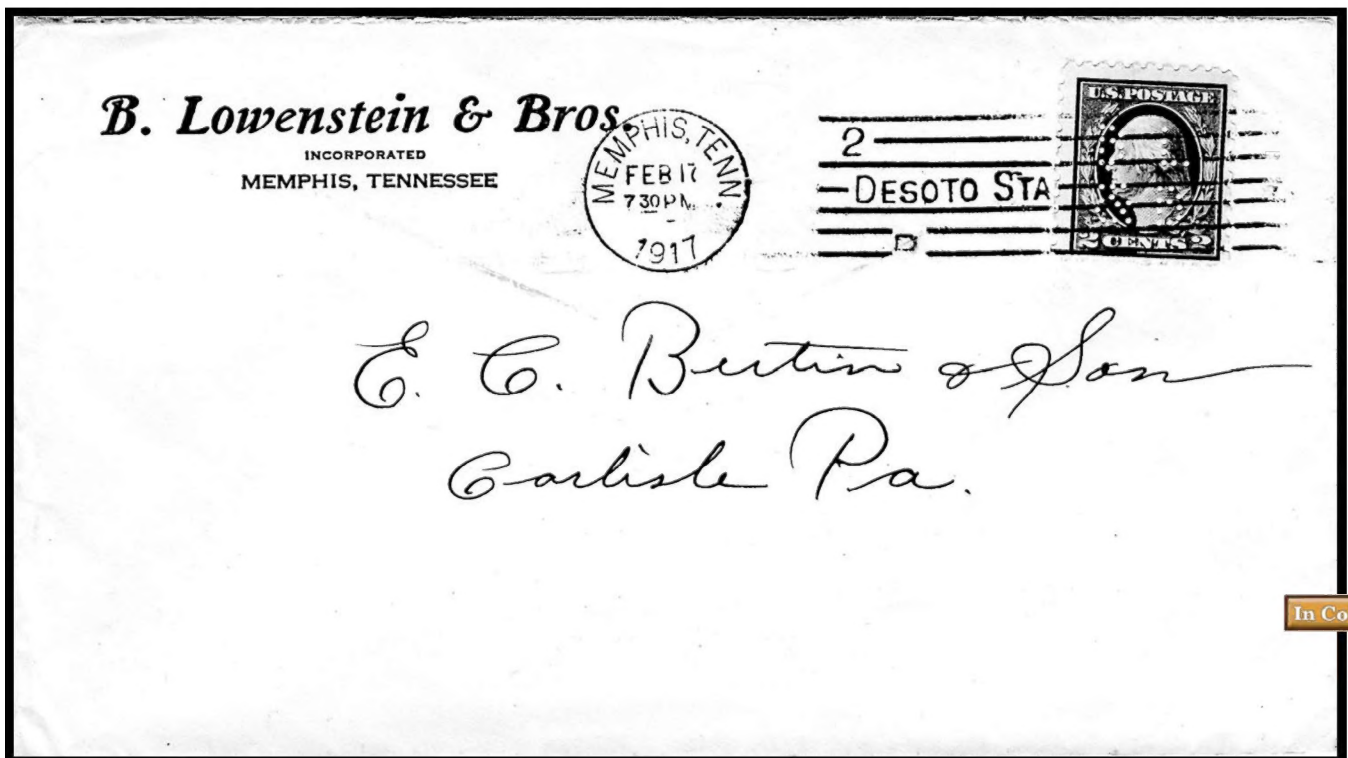 B. Lowenstein & Bros.
INCORPORATED
MEMPHIS, TENNESSEE
MEMPHIS, TENN.
FEB 17
7 30 PM
1917
2
DESOTO STA
U.S. POSTAGE
2 CENTS 2
E. C. Bertin & Son
Carlisle Pa.
In Co